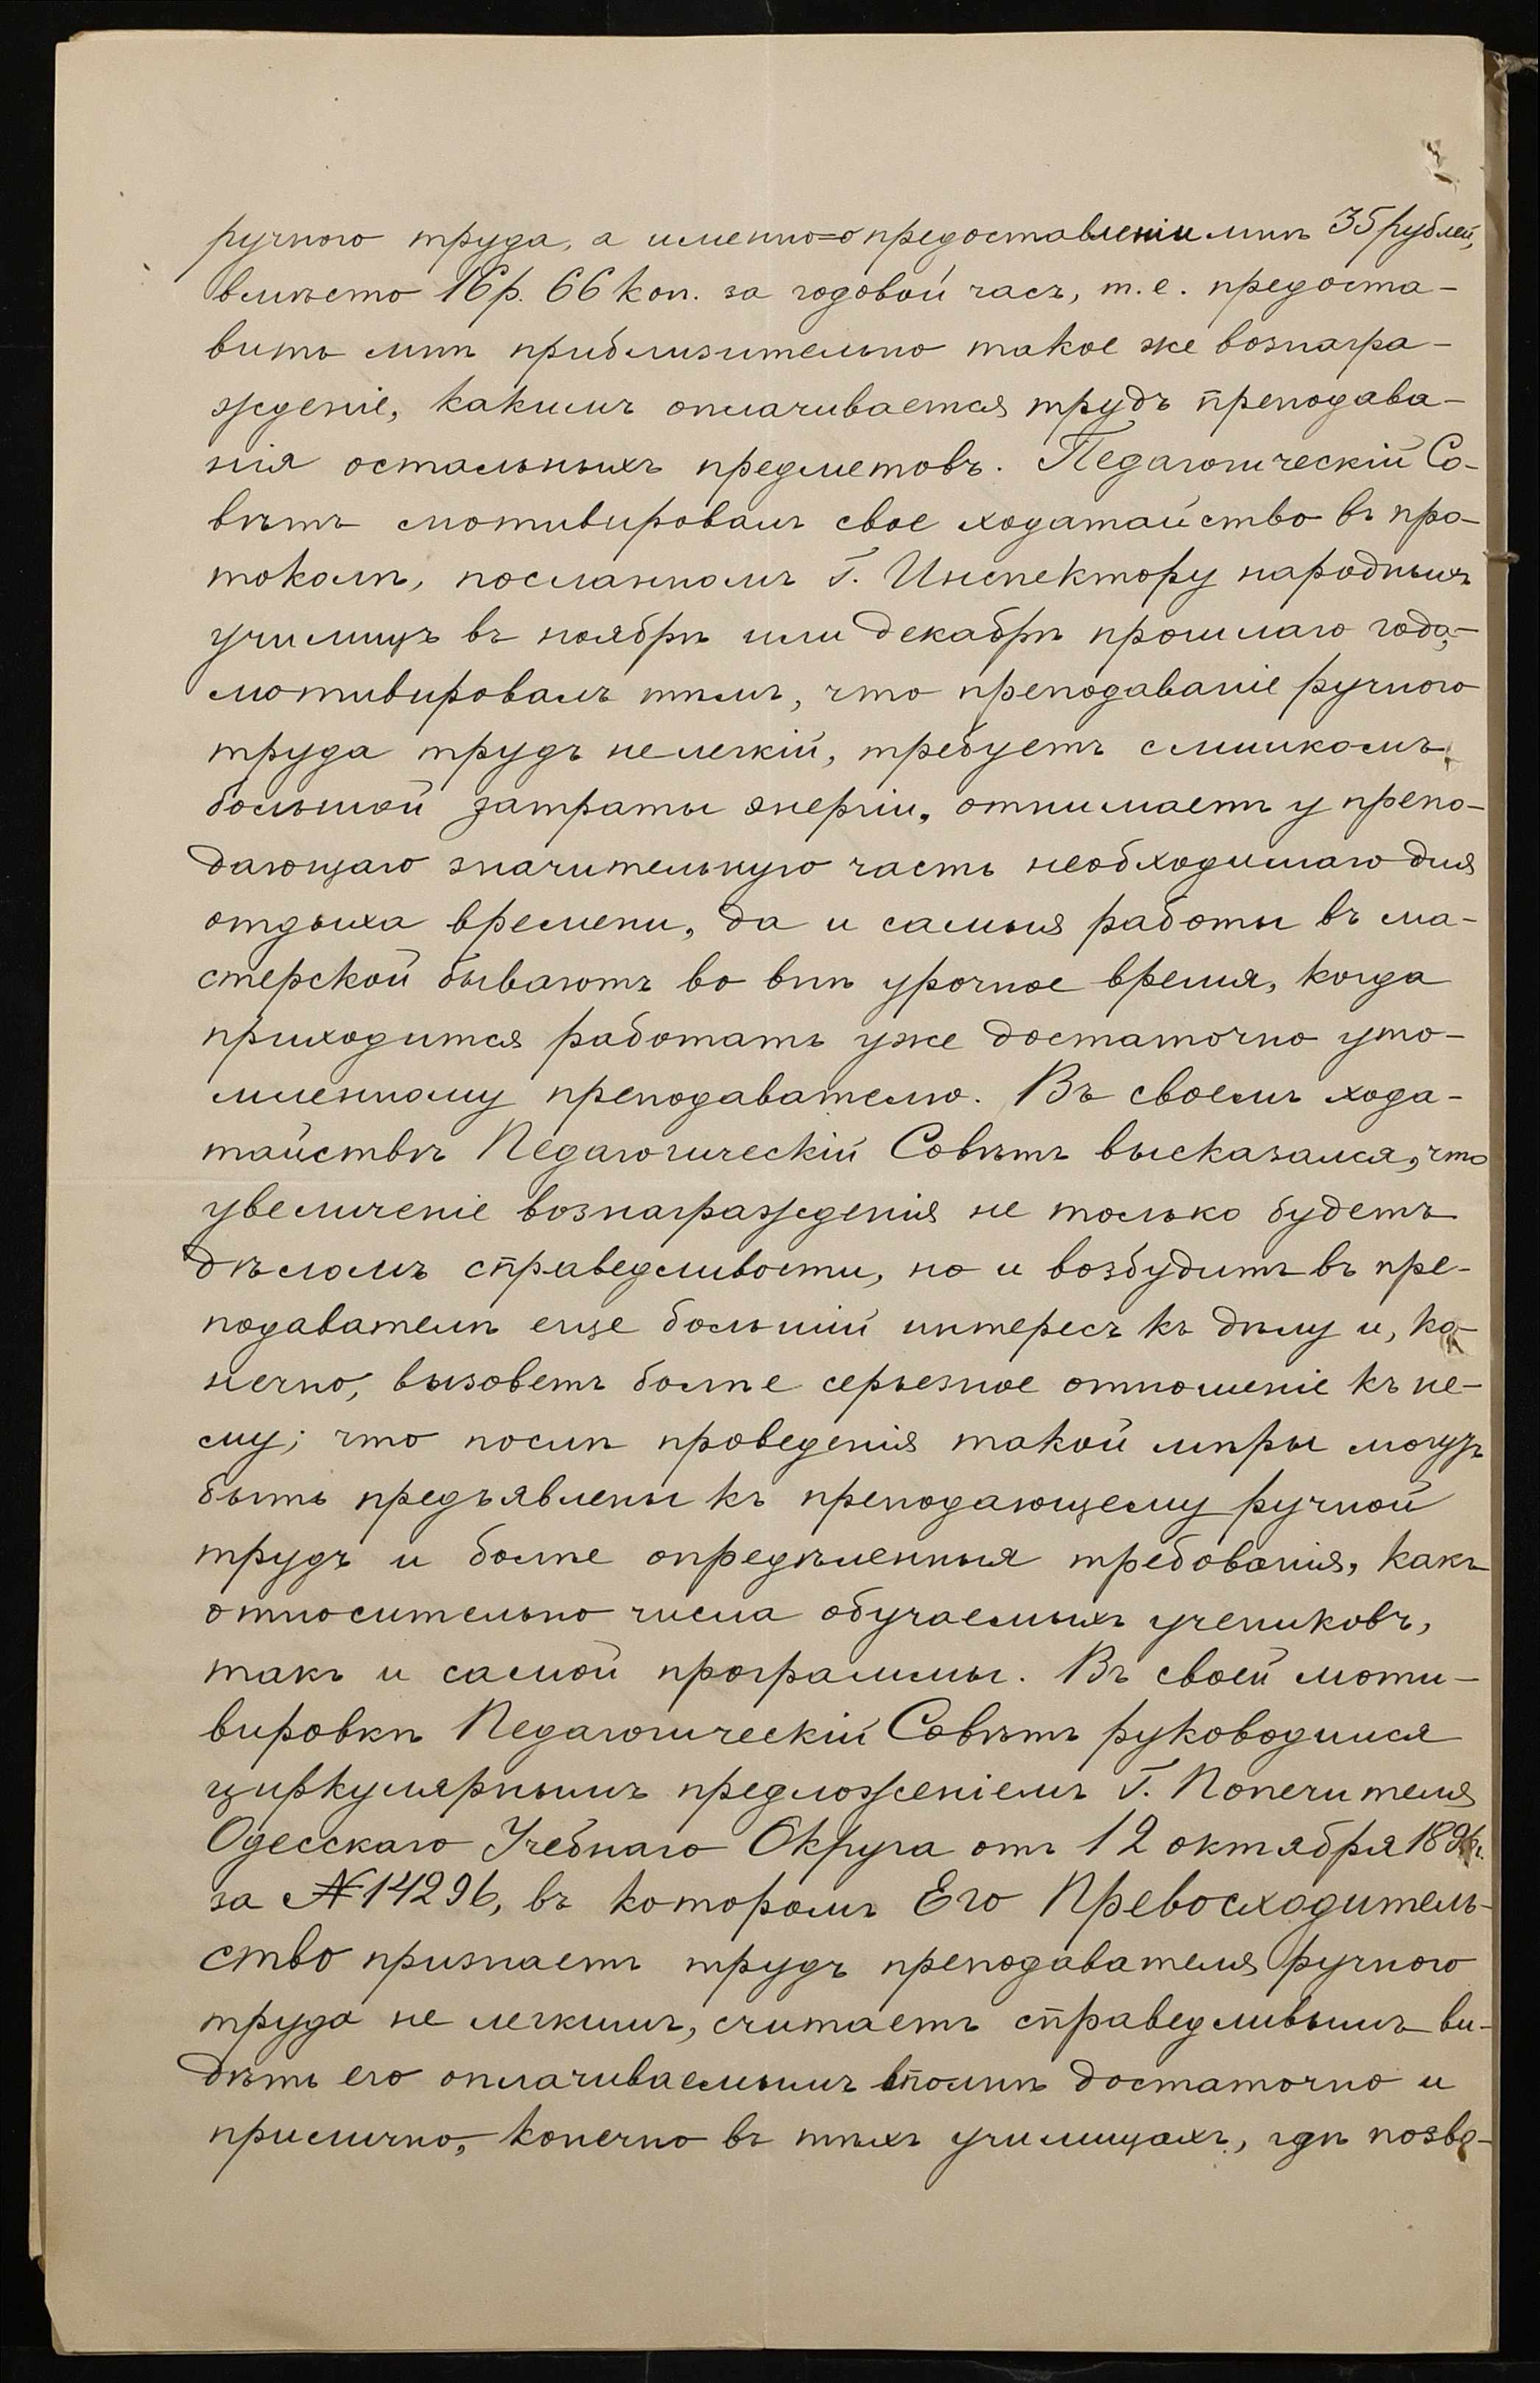 ручного труда, а именно=о предоставленіи мнѣ 35 рублей,
вмѣсто 16 р. 66 коп. за годовой часъ, т.е. предоста-
вить мнѣ приблизительно такое же вознагра-
жденіе, какимъ оплачивается трудъ преподава-
нія остальныхъ предметовъ. Педагогическій Со-
вѣтъ мотивировалъ свое ходатайство въ про-
токолѣ, посланномъ Г. Инспектору народныхъ
училищъ въ ноябрѣ или декабрѣ прошлаго года,-
мотивировалъ тѣмъ, что преподаваніе ручного
труда трудъ нелегкій, требуетъ слишкомъ
большой затраты энергіи, отнимаетъ у препо-
дающаго значительную часть необходимаго для
отдыха времени, да и самыя работы въ ма-
стерской бываютъ во внѣ урочное время, когда
приходится работать уже достаточно уто-
мленному преподавателю. Въ своемъ хода-
тайствѣ Педагогическій Совѣтъ высказался, что
увеличеніе вознагражденія не только будетъ
дѣломъ справедливости, но и возбудитъ въ пре-
подавателѣ еще большій интересъ къ дѣлу и, ко-
нечно, вызоветъ болѣе серьезное отношеніе къ не-
му; что послѣ проведенія такой мѣры могутъ
быть предъявлены къ преподающему ручной
трудъ и болѣе опредѣленныя требованія, какъ
относительно числа обучаемыхъ учениковъ,
такъ и самой программы. Въ своей моти-
вировкѣ Педагогическій Совѣтъ руководился
циркулярнымъ предложеніемъ Г. Попечителя
Одесскаго Учебнаго Округа отъ 12 октября
за № 14296, въ которомъ Его Превосходитель-
ство признаетъ трудъ преподавателя ручного
труда не легкимъ, считаетъ справедливымъ ви-
дѣть его оплачиваемымъ вполнѣ достаточно и
прилично,- конечно въ тѣхъ училищахъ, гдѣ позво-